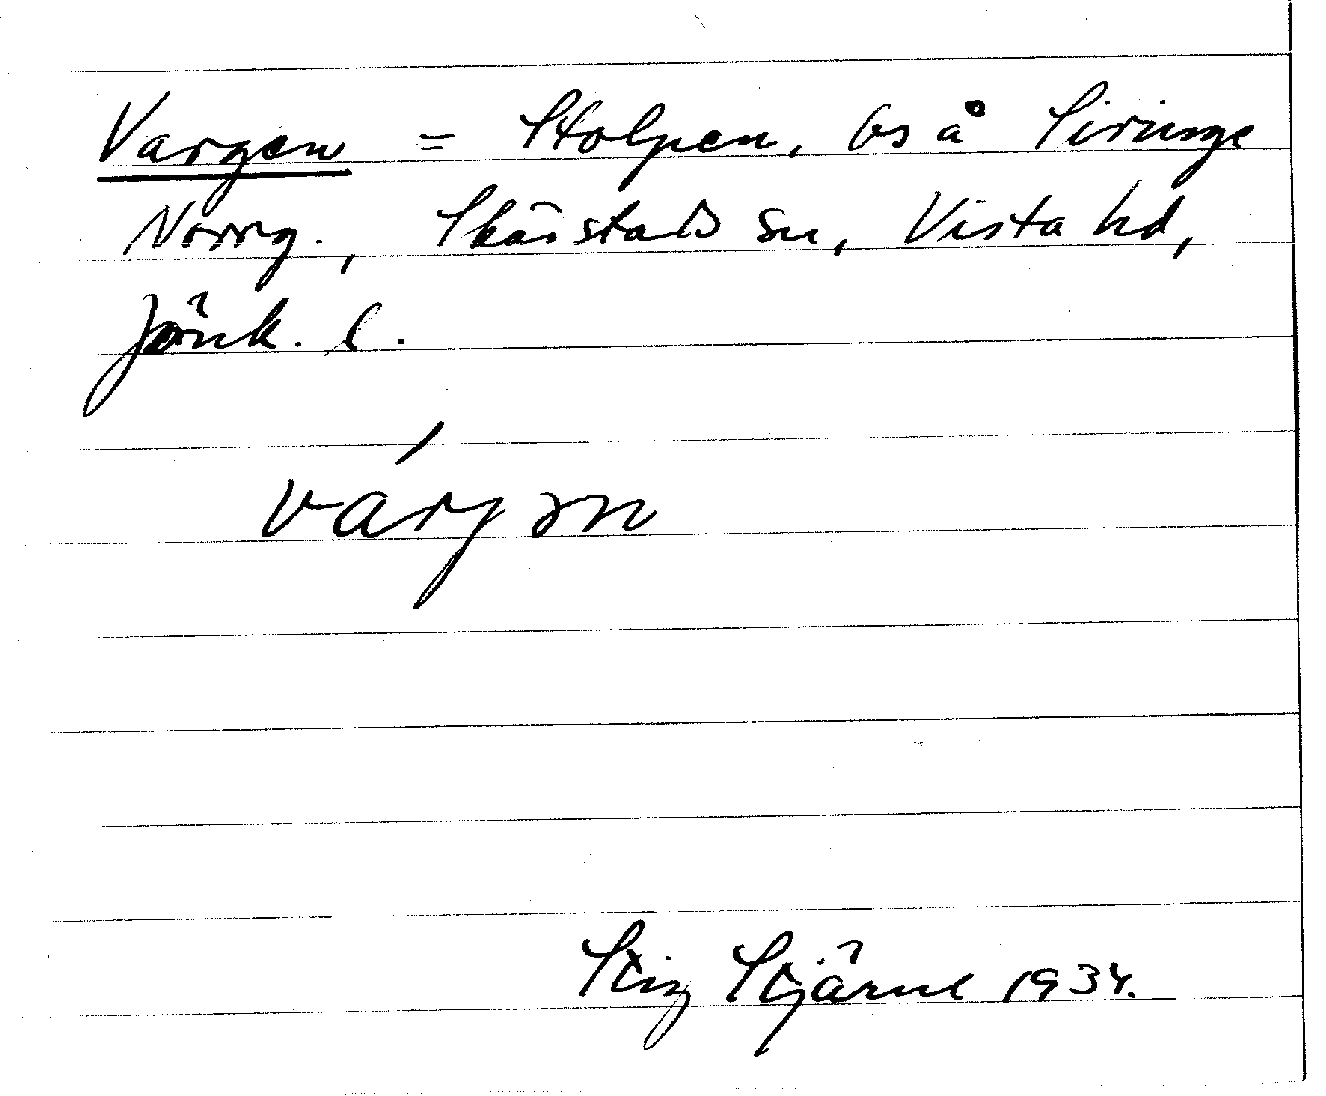 Vargen = Stolpen, bs å Siringe
Norrg., Skärstads sn, Vista hd,
Jönk. l.
várgən
Stig Stjärne 1934.